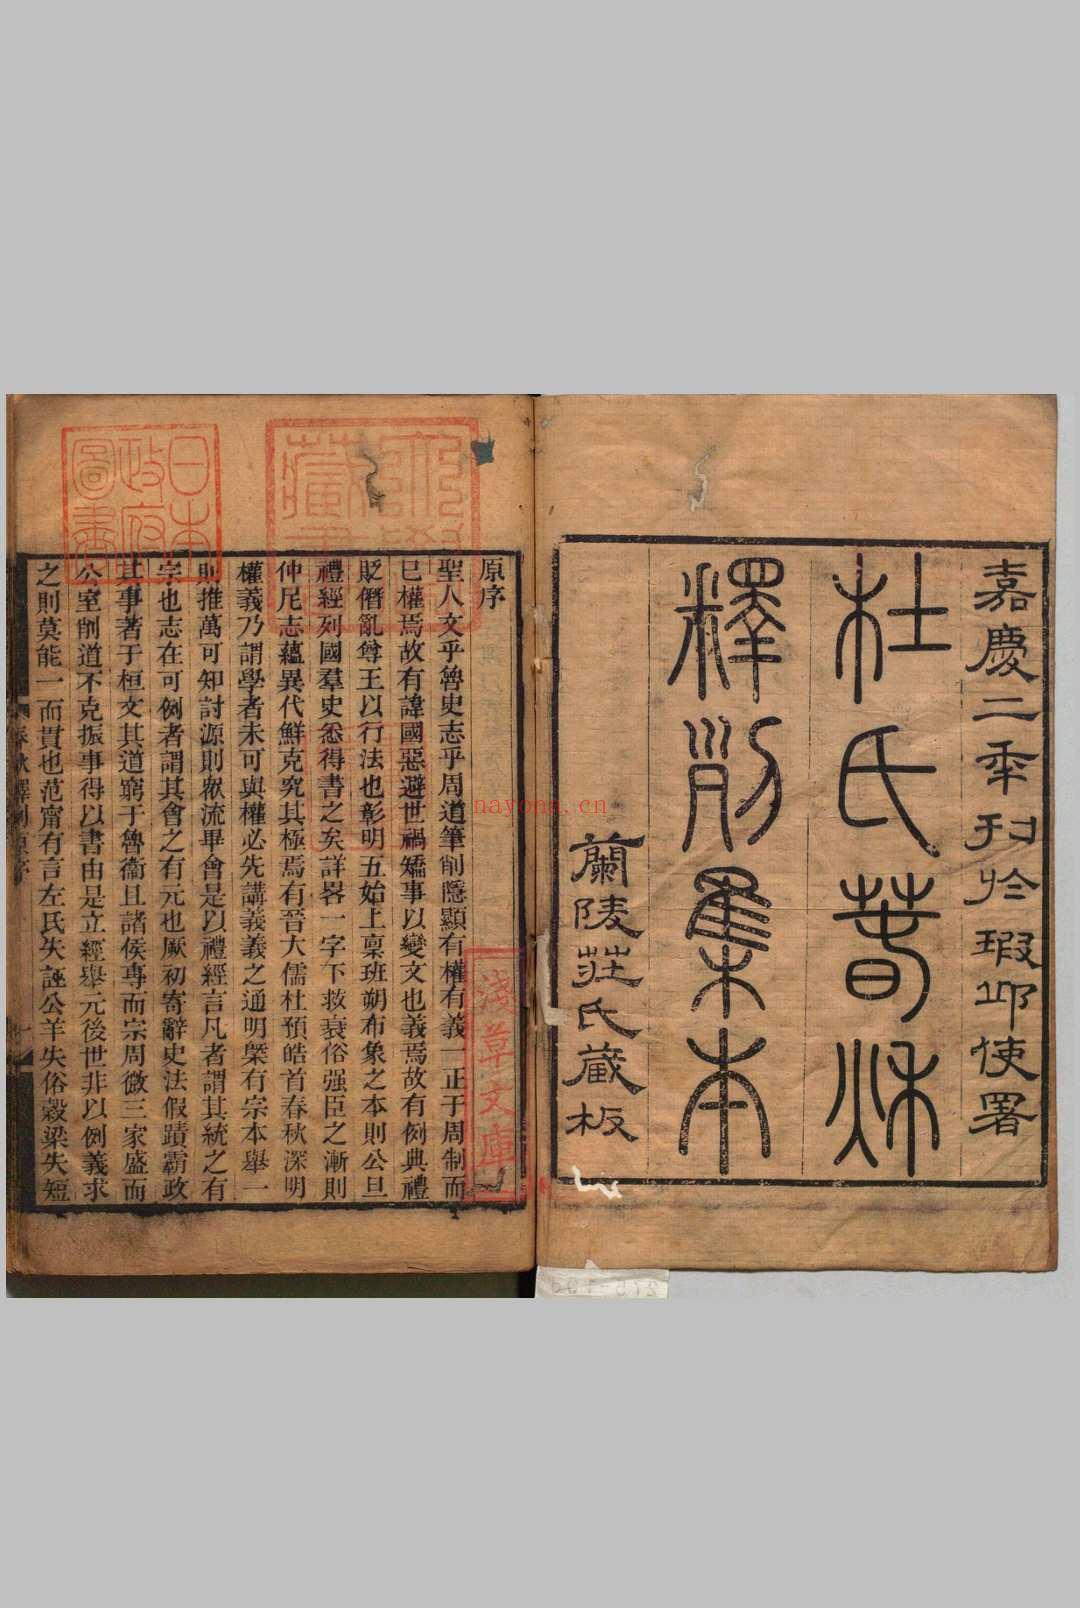 嘉慶二年刊於瑕邱使署
杜氏春秋
釋例集本
蘭陵莊氏藏板
原序
聖人文乎魯史志乎周道筆削隱顯有權有義一正于周制而
已權焉故有諱國惡避世禍矯事以變文也義焉故有例典禮
貶僭亂尊王以行法也彰明五始上稟班朔布象之本則公旦
禮經列國羣史悉得書之矣詳畧一字下救衰俗强臣之漸則
仲尼志蘊異代鮮克究其極焉有晉大儒杜預皓首春秋深明
權義乃謂學者未可與權必先講義義之通明槩有宗本舉一
則推萬可知討源則衆流畢會是以禮經言凡者謂其統之有
宗也志在可例者謂其會之有元也厥初寄辭史法假蹟霸政
其事著于桓文其道窮于魯衞且諸侯專而宗周微三家盛而
公室削道不克振事得以書由是立經舉元後世非以例義求
之則莫能一而貫也范甯有言左氏失誣公羊失俗穀梁失短
春秋釋例原序
一
日本政府圖書
淺草文庫
nayona.cn